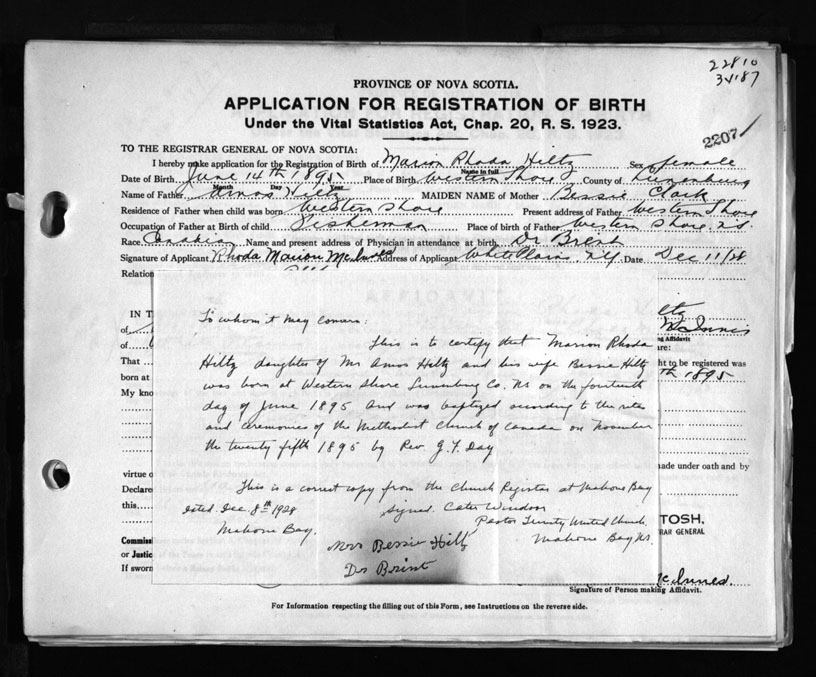 22810
34187
PROVINCE OF NOVA SCOTIA.
APPLICATION FOR REGISTRATION OF BIRTH
Under the Vital Statistics Act, Chap. 20, R. S. 1923.
2207
TO THE REGISTRAR GENERAL OF NOVA SCOTIA:
I hereby make application for the Registration of Birth of Marion Rhoda Hiltz Sex female
Name in full
Date of Birth June 14th 1895 Place of Birth Western Shore County of Lunenburg
Month Day Year
Name of Father Amos Hiltz MAIDEN NAME of Mother Bessie Clark
Residence of Father when child was born Western Shore Present address of Father Western Shore
Occupation of Father at Birth of child Fisherman Place of birth of Father Western Shore N.S
Race Canadian Name and present address of Physician in attendance at birth Dr Brent
Signature of Applicant Rhoda Marion McInnes Address of Applicant White Plains N.Y. Date Dec 11/28
Relation
IN T
of
ltz
McInnis
ng Affidavit
of
re:
That
ht to be registered was
born at
th 1895
My kno
To whom it may concern:
This is to certify that Marion Rhoda
Hiltz daughter of Mr Amos Hiltz and his wife Bessie Hiltz
was born at Western Shore Lunenburg Co. NS on the fourteenth
day of June 1895 and was baptized according to the rites
and ceremonies of the Methodist Church of Canada on November
the twenty fifth 1895 by Rev. G. F. Day
This is a correct copy from the Church Register at Mahone Bay
dated Dec. 8th 1928 Signed. Cater Windsor
Pastor Trinity United Church
Mahone Bay. Mahone Bay NS.
Mrs Bessie Hiltz
Dr Brint
virtue o
made under oath and by
Declare
this
TOSH,
RAR GENERAL
Commiss
or Justic
If sworn
McInnes.
Signature of Person making Affidavit.
For Information respecting the filling out of this Form, see Instructions on the reverse side.